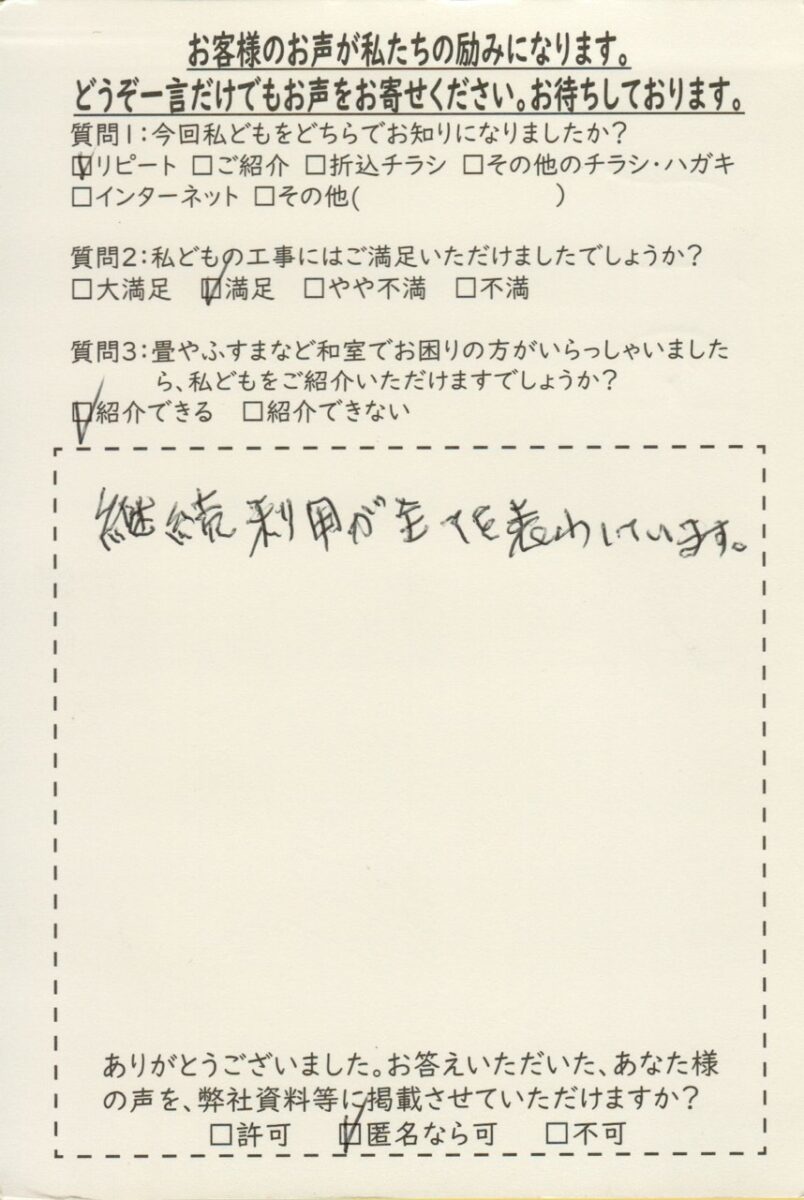 お客様のお声が私たちの励みになります。
どうぞ一言だけでもお声をお寄せください。お待ちしております。
質問1:今回私どもをどちらでお知りになりましたか?
☑リピート □ご紹介 □折込チラシ □その他のチラシ・ハガキ
□インターネット □その他( )
質問2:私どもの工事にはご満足いただけましたでしょうか?
□大満足 ☑満足 □やや不満 □不満
質問3:畳やふすまなど和室でお困りの方がいらっしゃいました
ら、私どもをご紹介いただけますでしょうか?
☑紹介できる □紹介できない
継続利用が全てを表わしています。
ありがとうございました。お答えいただいた、あなた様
の声を、弊社資料等に掲載させていただけますか?
□許可 ☑匿名なら可 □不可